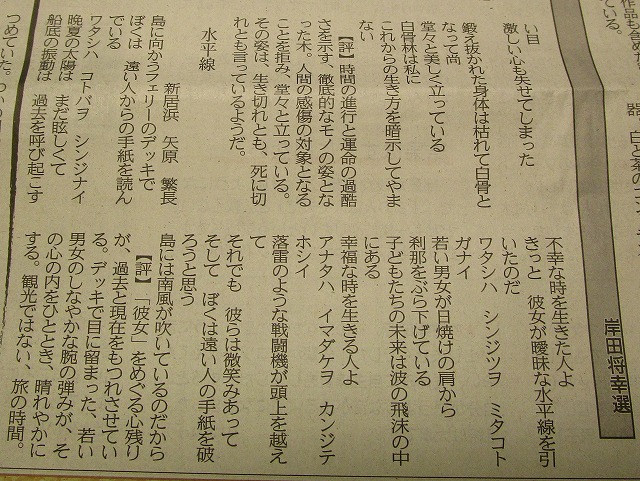 岸田将幸選
い目
激しい心も失せてしまった
鍛え抜かれた身体は枯れて白骨と
なって尚
堂々と美しく立っている
白骨林は私に
これからの生き方を暗示してやま
ない
【評】時間の進行と運命の過酷
さを示す、徹底的なモノの姿とな
った木。人間の感傷の対象となる
ことを拒み、堂々と立っている。
その姿は、生き切れとも、死に切
れとも言っているようだ。
水平線
新居浜 矢原 繁長
島に向かうフェリーのデッキで
ぼくは 遠い人からの手紙を読ん
でいる
ワタシハ コトバヲ シンジナイ
晩夏の太陽は まだ眩しくて
船底の振動は 過去を呼び起こす
不幸な時を生きた人よ
きっと 彼女が曖昧な水平線を引
いたのだ
ワタシハ シンジツヲ ミタコト
ガナイ
若い男女が日焼けの肩から
刹那をぶら下げている
子どもたちの未来は波の飛沫の中
にある
幸福な時を生きる人よ
アナタハ、イマダケヲ カンジテ
ホシイ
落雷のような戦闘機が頭上を越え
て
それでも 彼らは微笑みあって
そして ぼくは遠い人の手紙を破
ろうと思う
島には南風が吹いているのだから
【評】「彼女」をめぐる心残り
が、過去と現在をもつれさせてい
る。デッキで目に留まった、若い
男女のしなやかな腕の弾みが、そ
の心の内をひととき、晴れやかに
する。観光ではない、旅の時間。